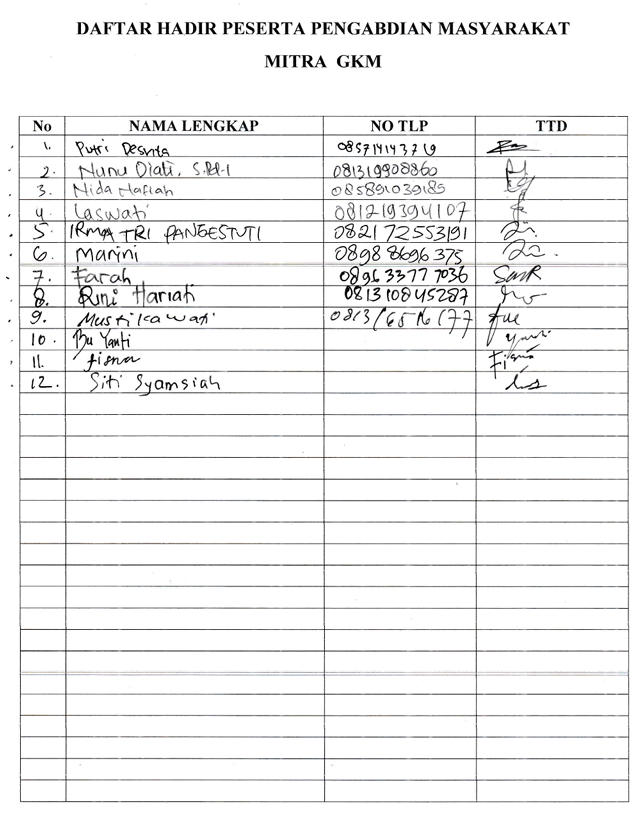 DAFTAR HADIR PESERTA PENGABDIAN MASYARAKAT
MITRA GKM
No NAMA LENGKAP NO TLP TTD
1. Putri Desvita 085714143719
2. Nunu Diati, S.Pd.I 081319908860
3. Nida Hafiah 085891039185
4. Laswati 081219394107
5. IRMA TRI PANGESTUTI 082172553191
6. Marini 08988696375
7. Farah 089633777036
8. Rini Hariati 081310845287
9. Mustikawati
10. Bu Yanti Yanti
11. fisna
12. Siti Syamsiah